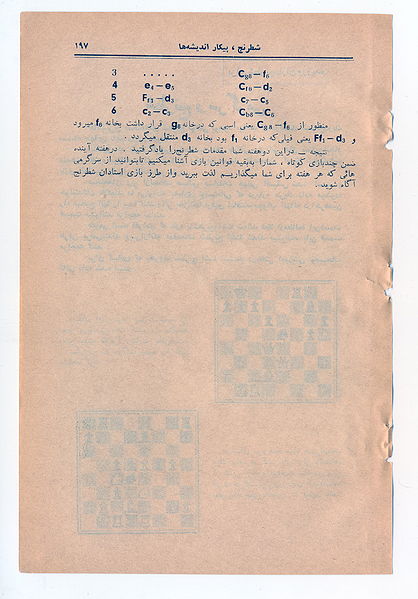 شطرنج ، پیکار اندیشه‌ها ۱۹۷
3 ..... Cg8—f6
4 e4—e5 Cf6—d7
5 Ff1—d3 C7—c5
6 c2—c3 Cb8—C6
منظور از Cg8—f6 یعنی اسبی که درخانه g8 قرار داشت بخانه f6 میرود
و Ff1—d3 یعنی فیلی‌که درخانه f1 بود بخانه d3 منتقل میگردد .
نتیجه ـ دراین دوهفته شما مقدمات شطرنج‌را یادگرفتید . درهفته آینده
ضمن چندبازی کوتاه ، شمارا به‌بقیه قوانین بازی آشنا میکنیم تابتوانید از سرگرمی
هائی که هر هفته برای شما میگذاریم لذت ببرید واز طرز بازی استادان شطرنج
آگاه شوید.